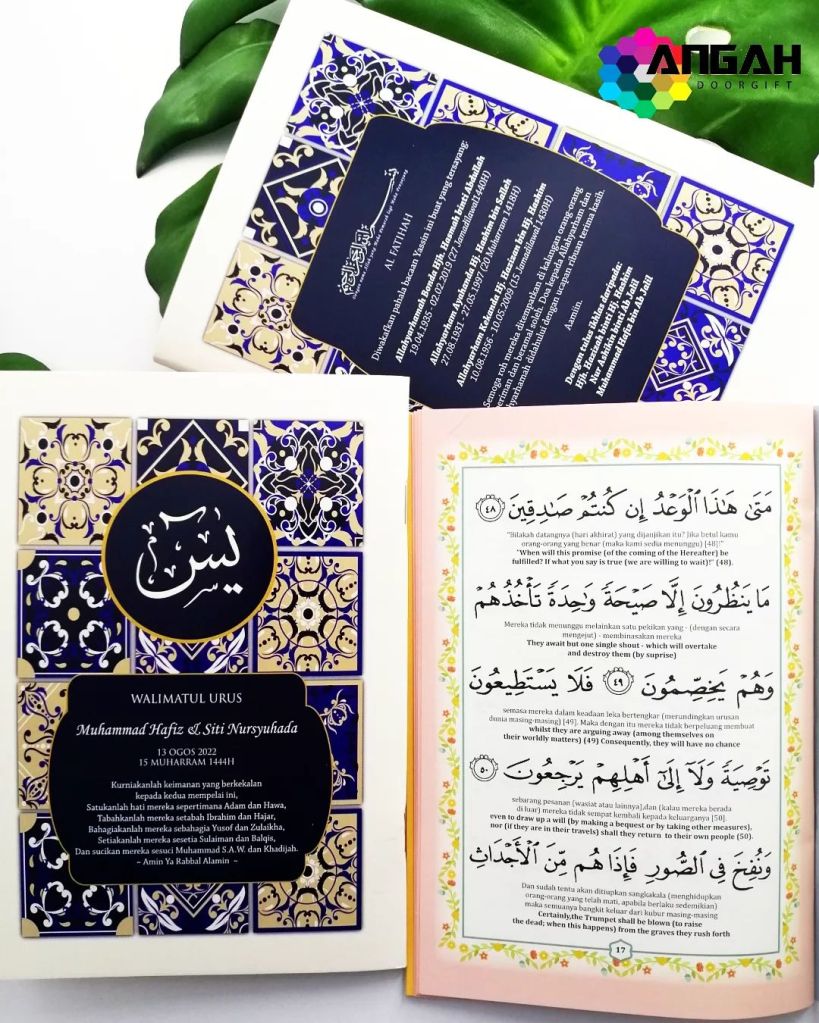 ANGAH
DOORGIFT
بسم الله الرحمن الرحيم
Dengan nama Allah yang Maha Pemurah lagi Maha Penyayang
AL FATIHAH
Diwakafkan pahala bacaan Yassin ini buat yang tersayang:
Allahyarhamah Bonda Hjh. binti Abdullah
19.04.1935 - 02.02.2019 (27 Jamadilawal 1440H)
Allahyarham Ayahanda Hj. Hashim bin Salleh
27.08.1931 - 27.05.1997 (20 Muharram 1418H)
Allahyarham Kekanda Hj. bin Hj. Hashim
10.08.1956 - 10.05.2009 (15 Jamadilawal 1430H)
Semoga roh mereka ditempatkan di kalangan orang-orang
eriman dan beramal soleh. Doa kepada Allahyarham dan
hyarhamah didahului dengan ucapan ribuan terima kasih.
Aamiin.
Dengan tulus ikhlas daripada:
Hjh. binti Hj. Hashim
Nur Ashikin binti Ab Dalil
Muhammad Hafiz Bin Ab Dalil
يس
WALIMATUL URUS
Muhammad Hafiz & Siti Nursyuhada
13 OGOS 2022
15 MUHARRAM 1444H
Kurniakanlah keimanan yang berkekalan
kepada kedua mempelai ini,
Satukanlah hati mereka sepertimana Adam dan Hawa,
Tabahkanlah mereka setabah Ibrahim dan Hajar,
Bahagiakanlah mereka sebahagia Yusof dan Zulaikha,
Setiakanlah mereka sesetia Sulaiman dan Balqis,
Dan sucikan mereka sesuci Muhammad S.A.W. dan Khadijah.
~ Amin Ya Rabbal Alamin ~
مَتَىٰ هَٰذَا ٱلْوَعْدُ إِن كُنتُمْ صَٰدِقِينَ ٤٨
"Bilakah datangnya (hari akhirat) yang dijanjikan itu? Jika betul kamu
orang-orang yang benar (maka kami sedia menunggu) [48]!"
"When will this promise (of the coming of the Hereafter) be
fulfilled? If what you say is true (we are willing to wait)!" (48).
مَا يَنظُرُونَ إِلَّا صَيْحَةً وَٰحِدَةً تَأْخُذُهُمْ
Mereka tidak menunggu melainkan satu pekikan yang - (dengan secara
mengejut) - membinasakan mereka
They await but one single shout - which will overtake
and destroy them (by suprise)
وَهُمْ يَخِصِّمُونَ ٤٩ فَلَا يَسْتَطِيعُونَ
semasa mereka dalam keadaan leka bertengkar (merundingkan urusan
dunia masing-masing) [49]. Maka dengan itu mereka tidak berpeluang membuat
whilst they are arguing away (among themselves on
their worldly matters) (49) Consequently, they will have no chance
تَوْصِيَةً وَلَآ إِلَىٰٓ أَهْلِهِمْ يَرْجِعُونَ ٥٠
sebarang pesanan (wasiat atau lainnya),dan (kalau mereka berada
di luar) mereka tidak sempat kembali kepada keluarganya [50].
even to draw up a will (by making a bequest or by taking other measures),
nor (if they are in their travels) shall they return to their own people (50).
وَنُفِخَ فِى ٱلصُّورِ فَإِذَا هُم مِّنَ ٱلْأَجْدَاثِ
Dan sudah tentu akan ditiupkan sangkakala (menghidupkan
orang-orang yang telah mati, apabila berlaku sedemikian)
maka semuanya bangkit keluar dari kubur masing-masing
Certainly,the Trumpet shall be blown (to raise
the dead; when this happens) from the graves they rush forth
17